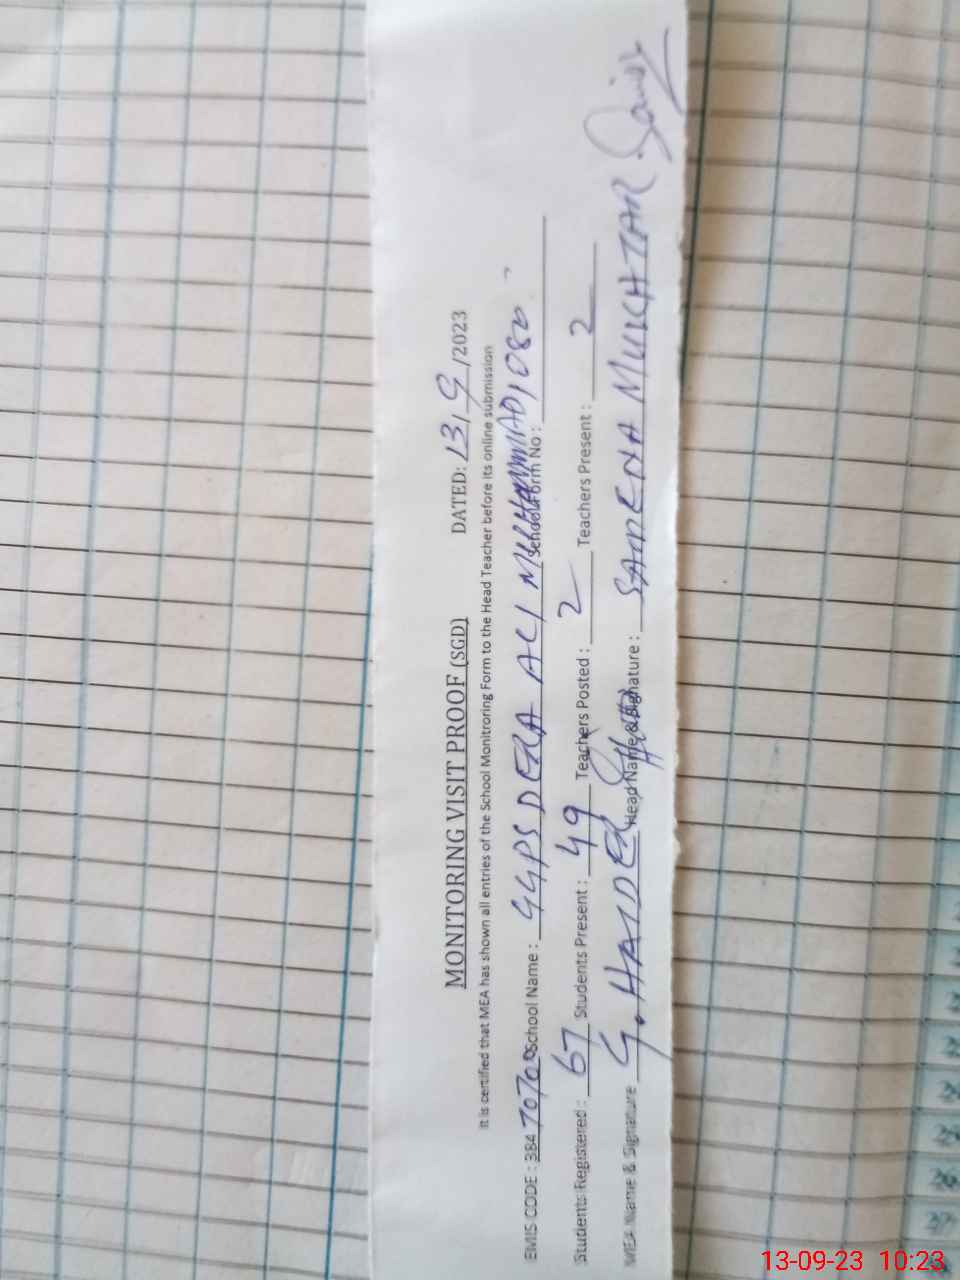 MONITORING VISIT PROOF (SGD) DATED: 13/9/2023
It is certified that MEA has shown all entries of the School Monitroring Form to the Head Teacher before its online submission
EMIS CODE : 384 School Name : GGPS DERA ALI MUHAMMAD School Form No : 1080
Students Registered : 67 Students Present : 49 Teachers Posted : 2 Teachers Present : 2
MEA Name & Signature G. HAIDER Head Name & Signature : SAMENA MUKHTAR
13-09-23 10:23